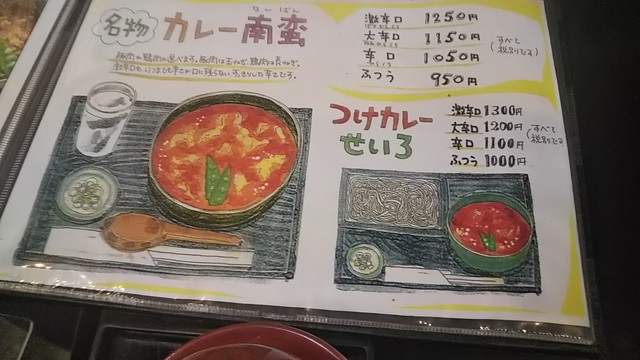 名物 カレー南蛮
なんばん
豚肉か鶏肉の選べます。豚肉は玉ねぎ、鶏肉は長ねぎ。
激辛口 1250円
大辛口 1150円
辛口 1050円
ふつう 950円
(すべて税別です)
つけカレーせいろ
激辛口 1300円
大辛口 1200円
辛口 1100円
ふつう 1000円
(すべて税別です)